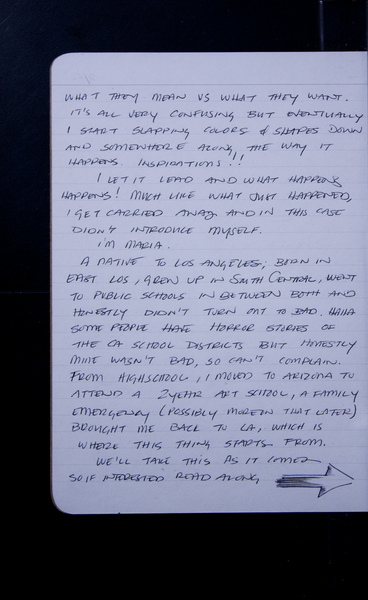 WHAT THEY MEAN VS WHAT THEY WANT.
IT'S ALL VERY CONFUSING BUT EVENTUALLY
I START SLAPPING COLORS & SHAPES DOWN
AND SOMEWHERE ALONG THE WAY IT
HAPPENS. INSPIRATIONS!!
I LET IT LEAD AND WHAT HAPPENS
HAPPENS! MUCH LIKE WHAT JUST HAPPENED,
I GET CARRIED AWAY AND IN THIS CASE
DIDN'T INTRODUCE MYSELF.
I'M MARIA.
A NATIVE TO LOS ANGELES; BORN IN
EAST LOS, GREW UP IN SOUTH CENTRAL, WENT
TO PUBLIC SCHOOLS IN BETWEEN BOTH AND
HONESTLY DIDN'T TURN OUT TO BAD. HAHA
SOME PEOPLE HAVE HORROR STORIES OF
THE CA SCHOOL DISTRICTS BUT HONESTLY
MINE WASN'T BAD, SO CAN'T COMPLAIN.
FROM HIGHSCHOOL, I MOVED TO ARIZONA TO
ATTEND A 2 YEAR ART SCHOOL, A FAMILY
EMERGENCY (POSSIBLY MORE ON THAT LATER)
BROUGHT ME BACK TO LA, WHICH IS
WHERE THIS THING STARTS FROM.
WE'LL TAKE THIS AS IT COMES
SO IF INTERESTED READ ALONG